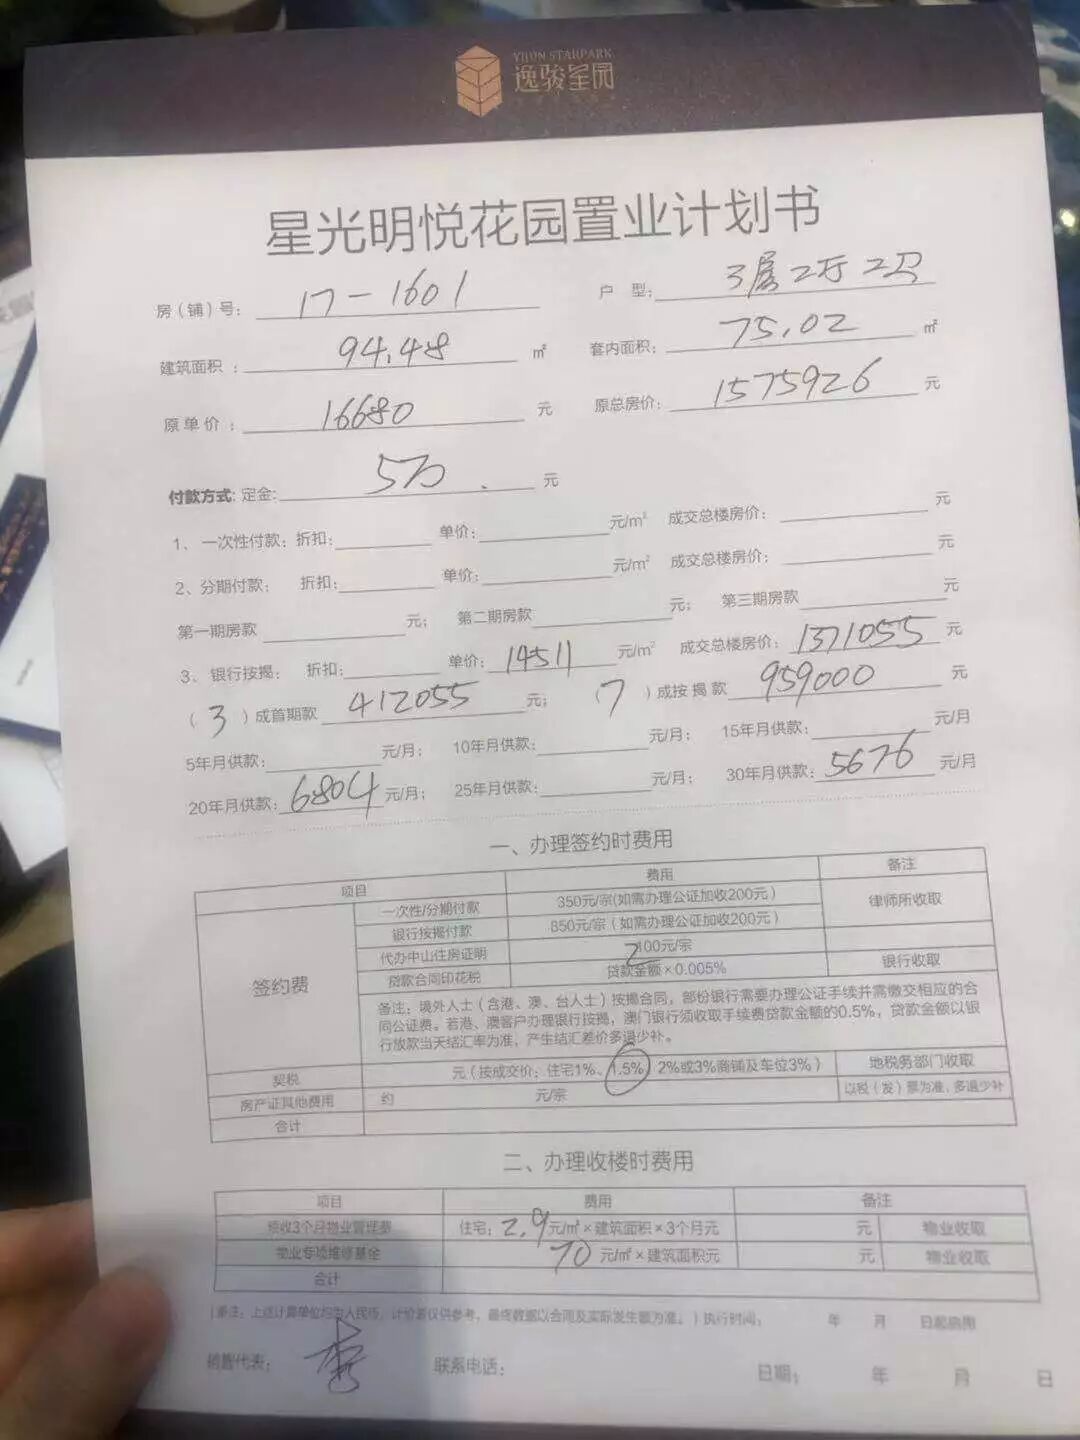 YIJUN STARPARK
逸骏星园
星光明悦花园置业计划书
房（铺）号： 17-1601 户 型： 3房2厅2卫
建筑面积 ： 94.48 ㎡ 套内面积： 75.02 ㎡
原 单 价 ： 16680 元 原总房价： 1575926 元
付款方式: 定金: 5万 . 元
1、 一次性付款：折扣: 单价: 元/m² 成交总楼房价： 元
2、分期付款； 折扣: 单价: 元/m² 成交总楼房价： 元
第一期房款 元； 第二期房款 元； 第三期房款 元
3、 银行按揭： 折扣: 单价: 14511 元/m² 成交总楼房价： 1371055 元
（ 3 ）成首期款 412055 元； （ 7 ）成按 揭 款 959000 元
5年月供款: 元/月； 10年月供款: 元/月； 15年月供款: 元/月
20年月供款: 6804 元/月； 25年月供款: 元/月； 30年月供款: 5676 元/月
一、办理签约时费用
项目 费用 备注
签约费 一次性/分期付款 350元/宗(如需办理公证加收200元） 律师所收取
银行按揭付款 850元/宗（如需办理公证加收200元）
代办中山住房证明 100元/宗
贷款合同印花税 贷款金额×0.005% 银行收取
备注：境外人士（含港、澳、台人士）按揭合同，部份银行需要办理公证手续并需缴交相应的合
同公证费。若港、澳客户办理银行按揭，澳门银行须收取手续费贷款金额的0.5%，贷款金额以银
行放款当天结汇率为准，产生结汇差价多退少补。
契税 元（按成交价：住宅1%、1.5%、2%或3%商铺及车位3%） 地税务部门收取
房产证其他费用 约 元/宗 以税（发）票为准，多退少补
合计
二、办理收楼时费用
项目 费用 备注
预收3个月物业管理费 住宅：2.9元/㎡×建筑面积×3个月元 元 物业收取
物业专项维修基金 70 元/㎡×建筑面积元 元 物业收取
合计
（备注：上述计算单位均为人民币，计价表仅供参考，最终数据以合同及实际发生额为准。）执行时间： 年 月 日起启用
销售代表： 联系电话： 日期： 年 月 日